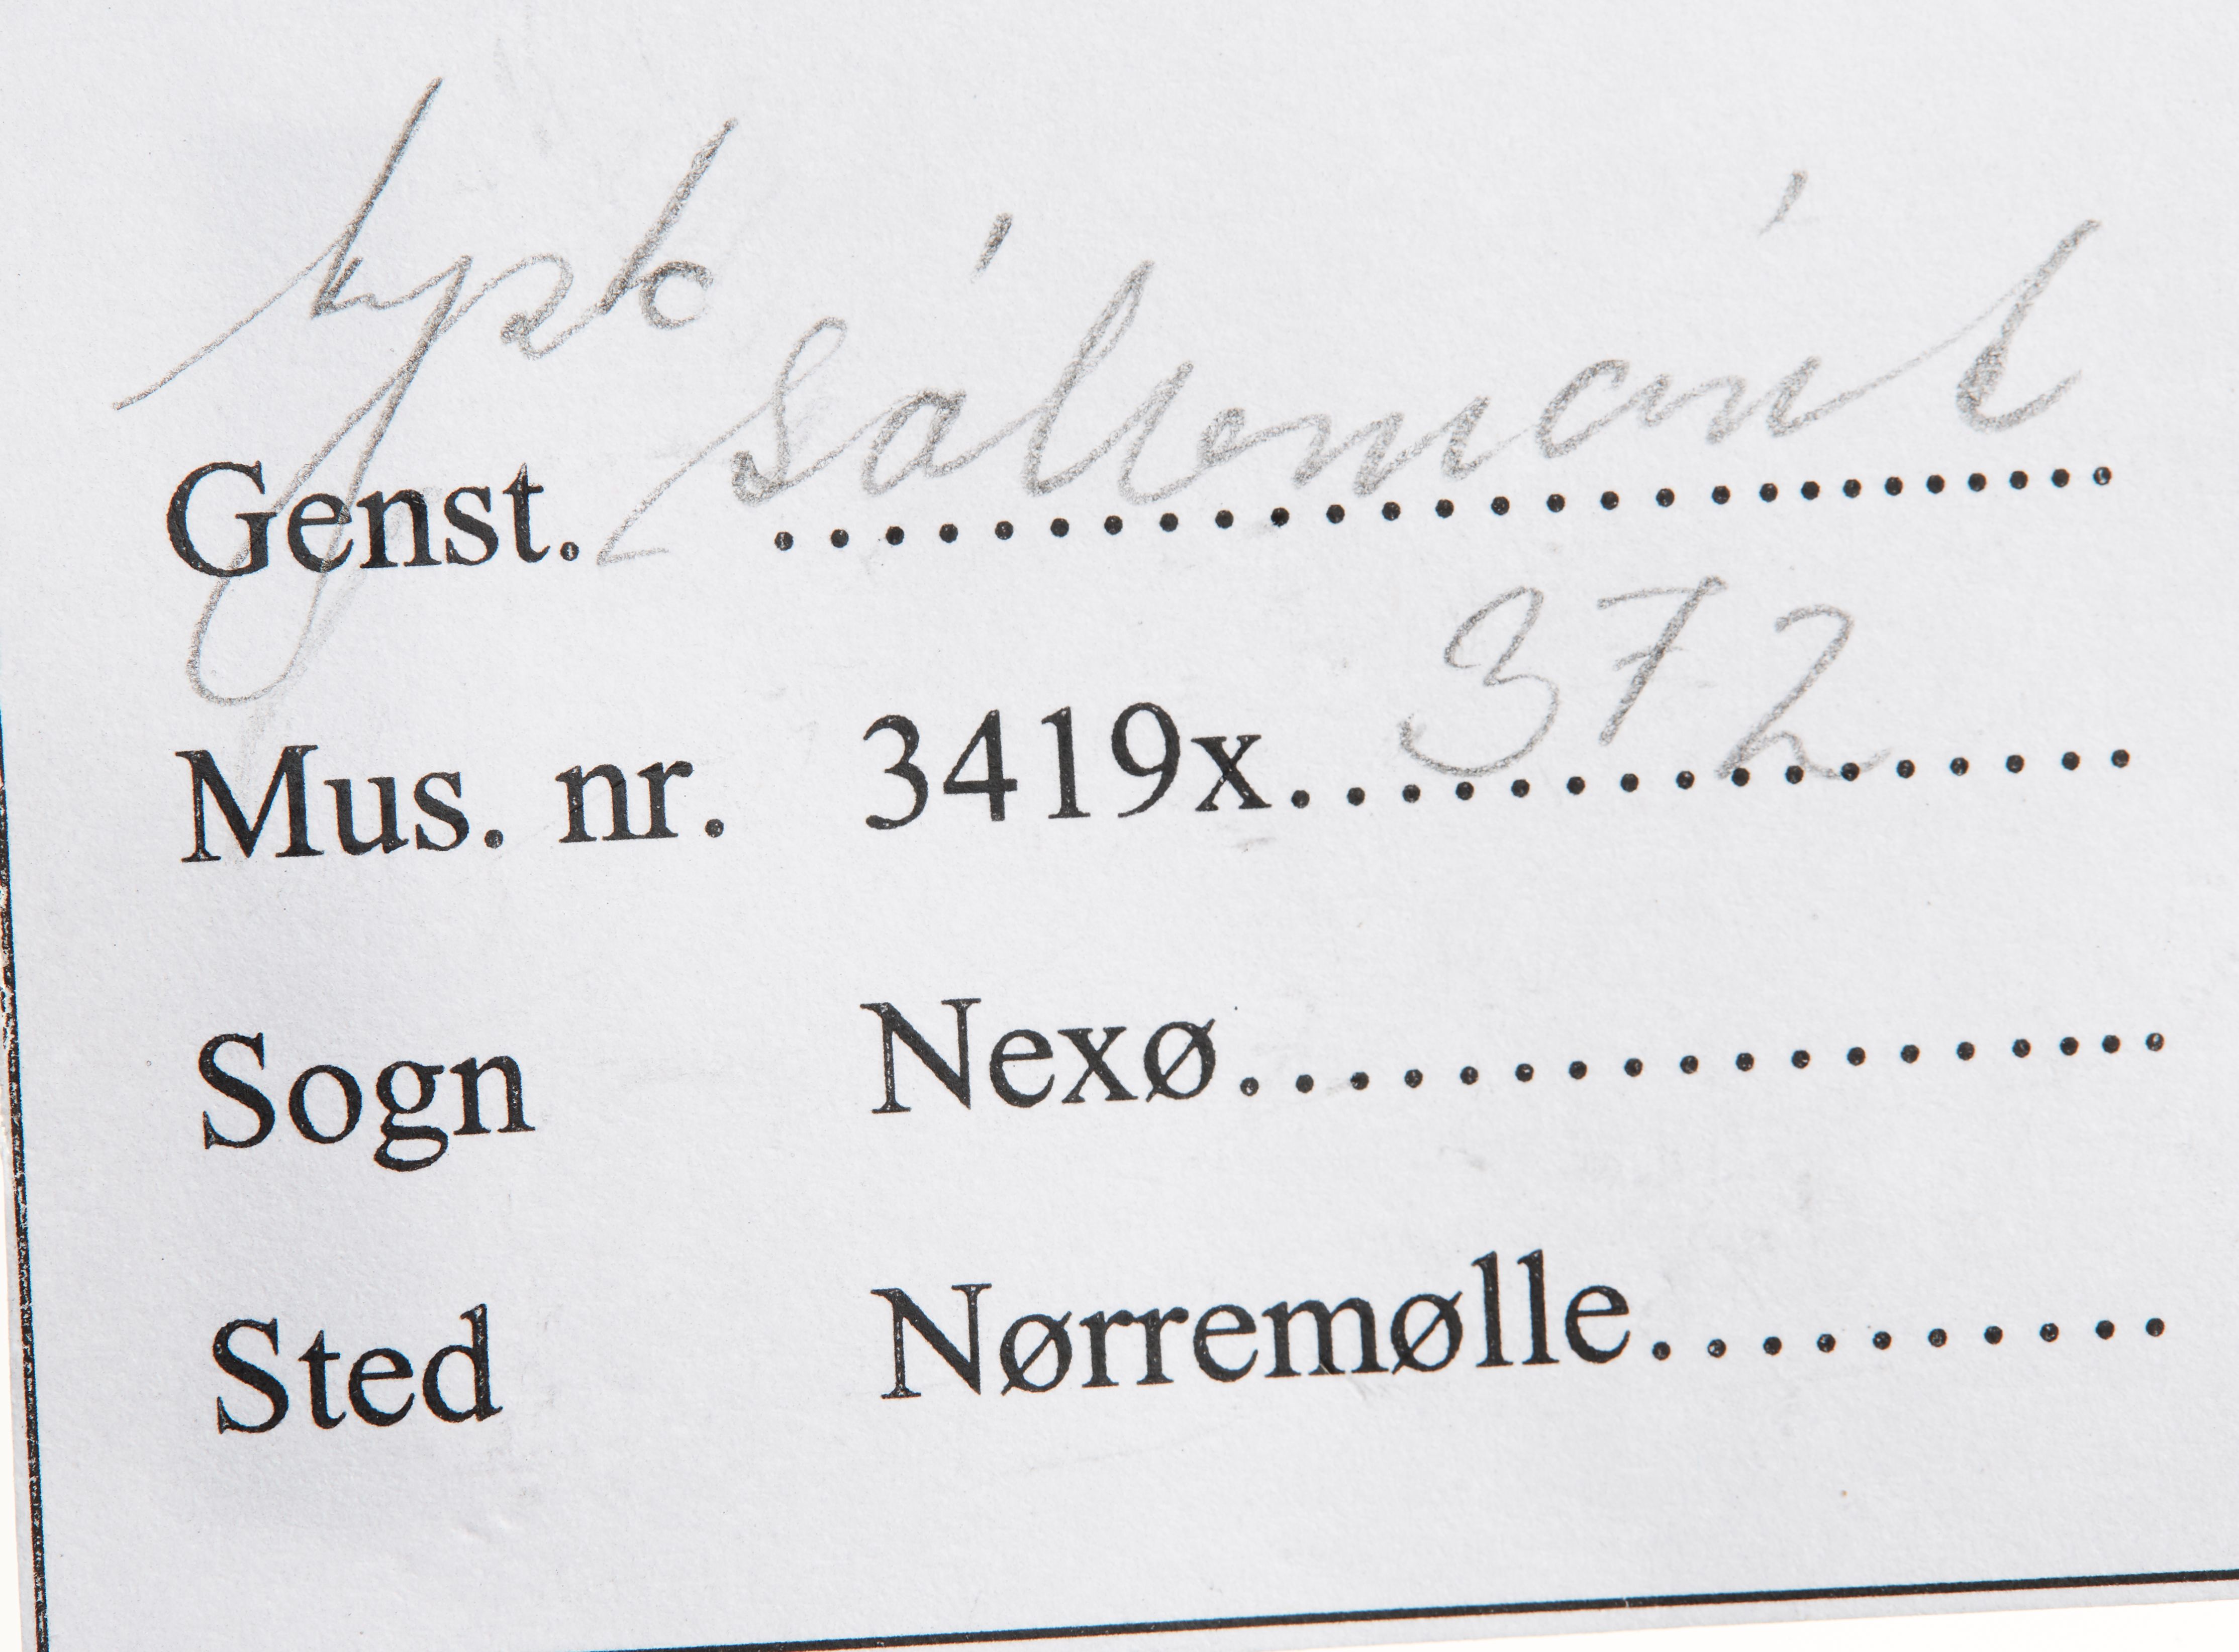 tysk
Genst. sølvmønt
Mus. nr. 3419x 372
Sogn Nexø
Sted Nørremølle